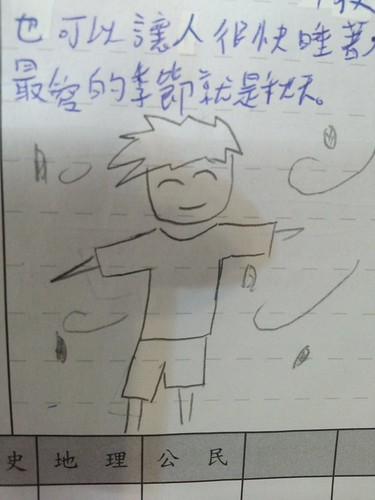 也可以讓人很快睡著,
最愛的季節就是秋天。
史 地理 公民